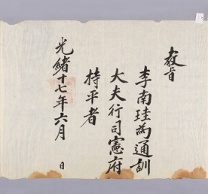 敎旨
李南珪爲通訓
大夫行司憲府
持平者
光緖十七年六月 日